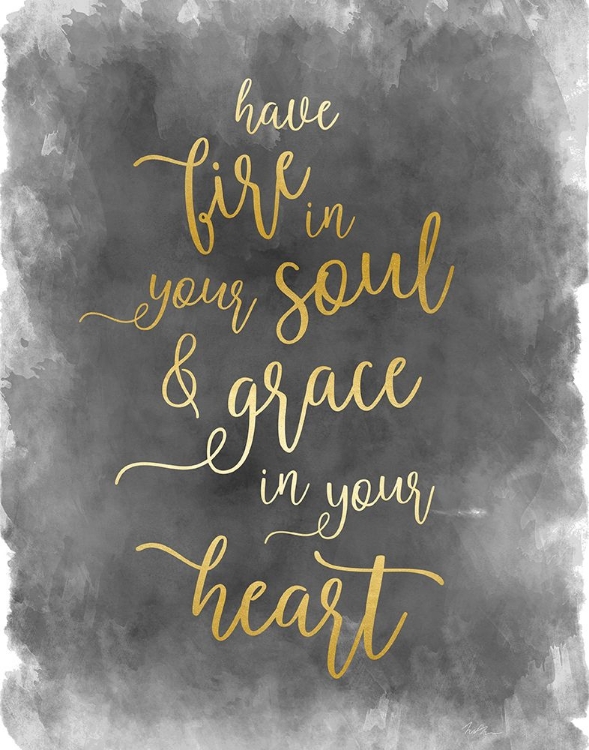 have
fire in
your soul
& grace
in your
heart